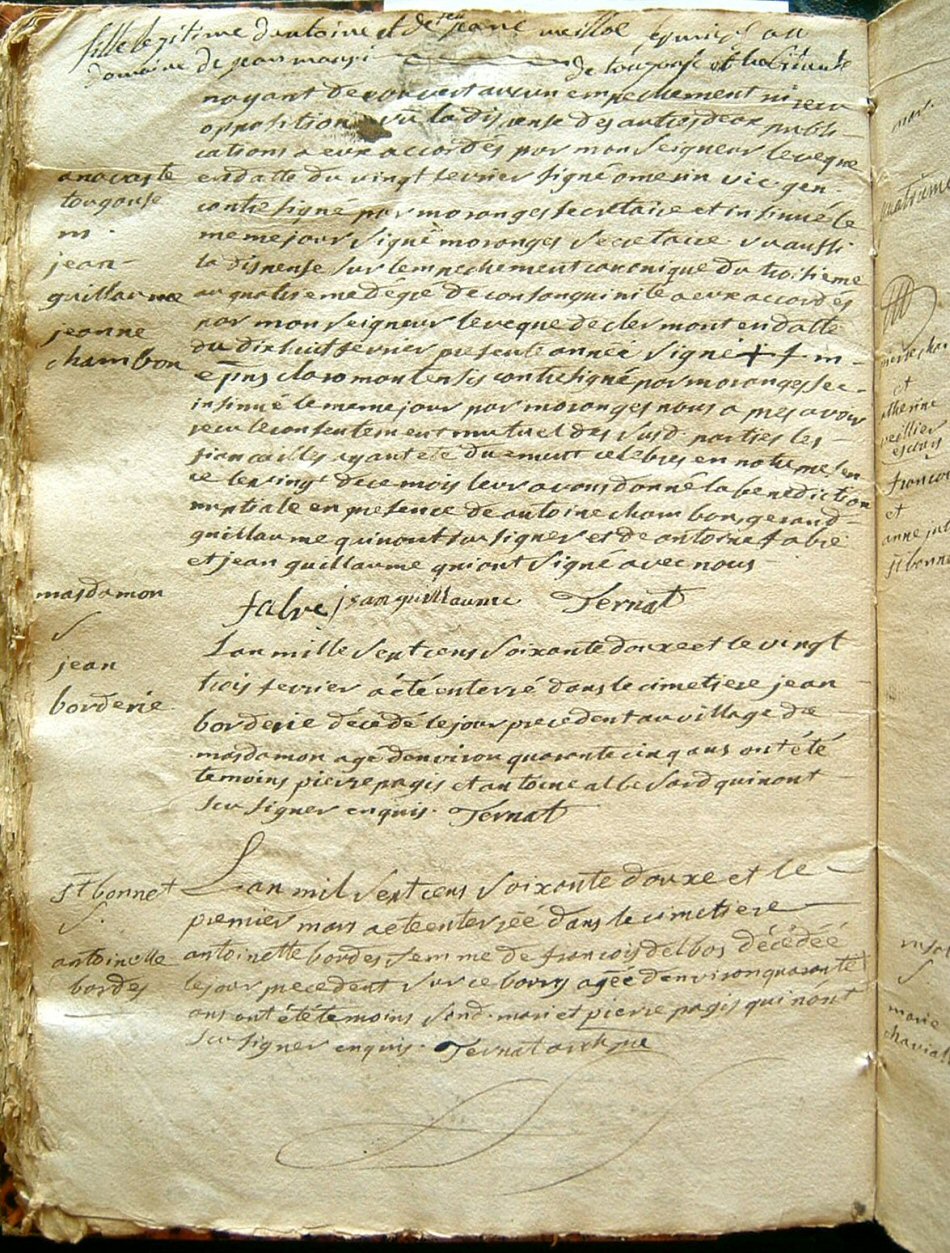 fille legitime dantoine et de feu jeane meilloc
domaine de jean mauri
nayant decouvert aucun empechement ni recu
opposition vu la dispense des autres deux publi-
cations a eux accordés par monseigneur leveque
en datte du vingt fevrier signé vic gen.
contresigné par moranges secretaire et insinué le
meme jour signé moranges secretaire vu aussi
la dispense sur lempechement canonique du troisieme
au quatrieme degré de consanguinité a eux accordés
par monseigneur leveque de clermont en datte
du dixhuit fevrier presente année signé + f m
epus claromontensis contresigné par moranges sec-
insinué le meme jour par moranges nous apres avoir
recu le consentement mutuel des susd. parties les
fiancailles ayant été duement celebrés en notre presen
ce le vingt de ce mois leur avons donné la benediction
nuptiale en presence de antoine chambon, gerand-
guillaume qui nont su signer et de antoine fabre
et jean guillaume qui ont signé avec nous
falvre jean guillaume Ternat
anavaste
tougouse
m.
jean-
guillaume
jeanne
chambon
masdamon
s
jean
borderie
Lan mille sept cens soixante douze et le vingt
trois fevrier a été enterré dans le cimetiere jean
borderie décédé le jour precedent au village de
masdamon agé denviron quarante cinq ans ont été
temoins pierre pagis et antoine albessard qui nont
scu signer enquis. Ternat
st bonnet
s
antoinette
bordes
Lan mil sept cens soixante douze et le
premier mars a ete enterréé dans le cimetiere
antoinette bordes femme de francois delbos décédéé
le jour precedent sur ce bourg agéé denviron quarante
ans ont été temoins sond. mari et pierre pagis qui nont
scu signer enquis. Ternat
et
francoi
et
st bonne
s
marie